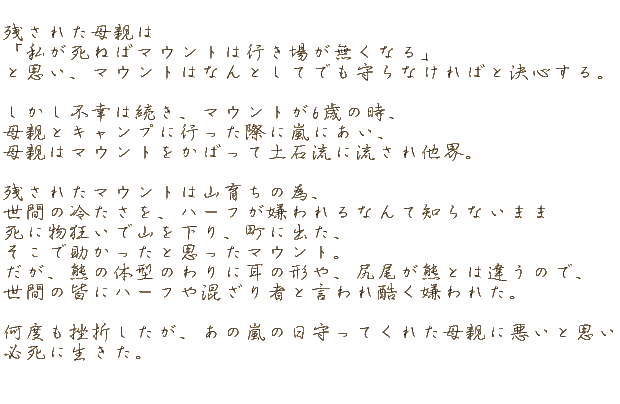 残された母親は
「私が死ねばマウントは行き場が無くなる」
と思い、マウントはなんとしてでも守らなければと決心する。
しかし不幸は続き、マウントが6歳の時、
母親とキャンプに行った際に嵐にあい、
母親はマウントをかばって土石流に流され他界。
残されたマウントは山育ちの為、
世間の冷たさを、ハーフが嫌われるなんて知らないまま
死に物狂いで山を下り、町に出た、
そこで助かったと思ったマウント。
だが、熊の体型のわりに耳の形や、尻尾が熊とは違うので、
世間の皆にハーフや混ざり者と言われ酷く嫌われた。
何度も挫折したが、あの嵐の日守ってくれた母親に悪いと思い
必死に生きた。